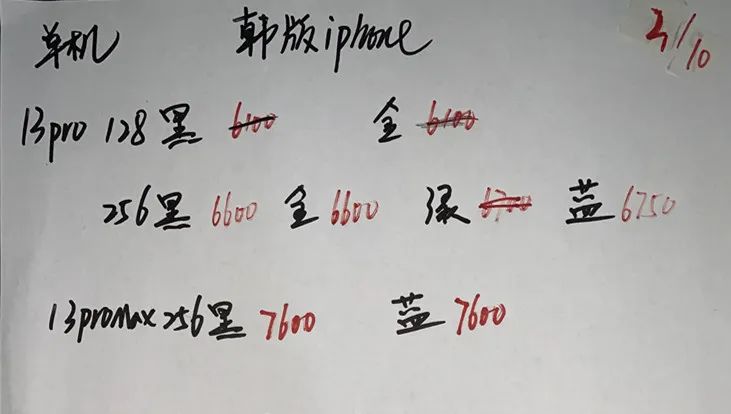 单机 韩版iphone 3/10
13pro 128黑 6100 金 6100
256黑 6600 金 6600 绿 6700 蓝 6750
13promax 256黑 7600 蓝 7600